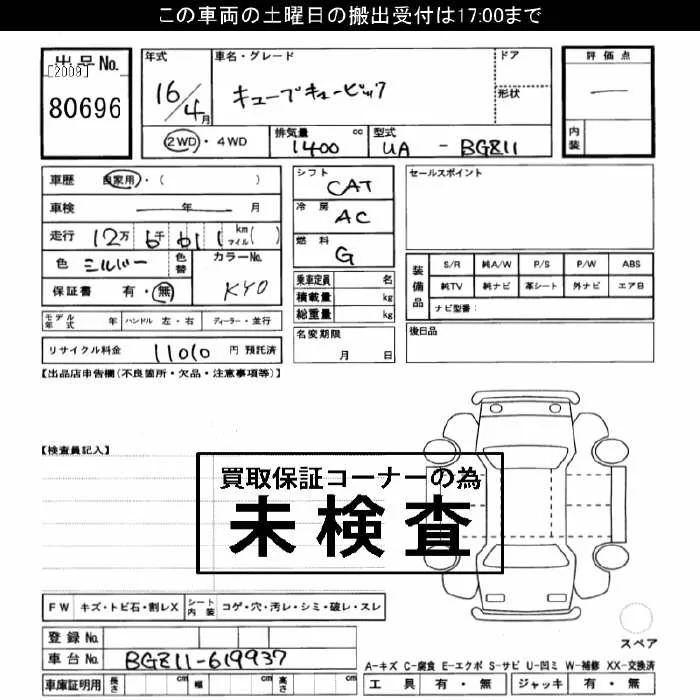 この車両の土曜日の搬出受付は17:00まで
出品No.
[2009]
80696
年式
16/4月
車名・グレード
キューブキュービック
ドア
形状
評価点
—
内装
2WD・4WD
排気量 cc
1400
型式
UA - BGZ11
車歴 自家用・( )
車検 年 月
走行 12万6千611 km マイル( )
色 シルバー 色替
カラーNo.
KY0
保証書 有・無
シフト
CAT
冷房
AC
燃料
G
乗車定員 名
積載量 kg
総重量 kg
セールスポイント
装備品
S/R 純A/W P/S P/W ABS
純TV 純ナビ 革シート 外ナビ エアB
ナビ型番:
モデル年式 年 ハンドル 左・右 ディーラー・並行
名変期限
月 日
後日品
リサイクル料金 11010 円 預託済
【出品店申告欄(不良箇所・欠品・注意事項等)】
【検査員記入】
買取保証コーナーの為
未検査
FW キズ・トビ石・割レX シート内装 コゲ・穴・汚レ・シミ・破レ・スレ
登録No.
車台No. BGZ11-619937
車庫証明用 長さ cm 幅 cm 高さ cm
スペア
A-キズ C-腐食 E-エクボ S-サビ U-凹ミ W-補修 XX-交換済
工具 有・無 ジャッキ 有・無